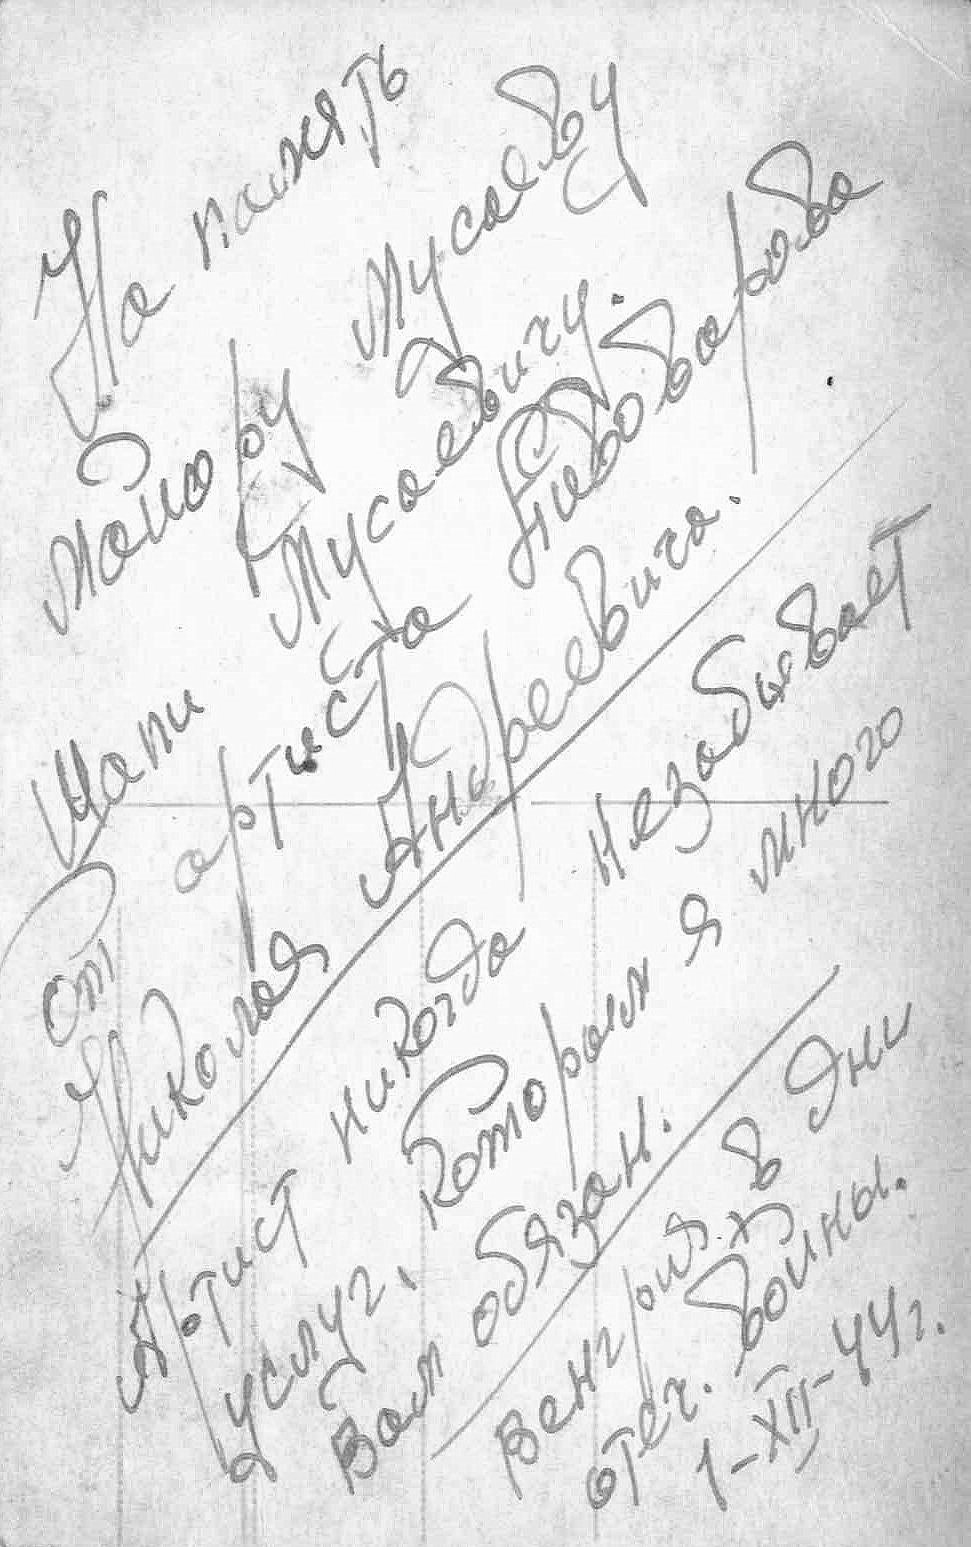 На память
Майору Мусаеву
Шапи Мусаевичу.
От артиста
Николая Андреевича.
Артист никогда незабывает
услуг, которым я много
Вам обязан.
Венгрия. в дни
отеч. войны.
1-XII-44г.